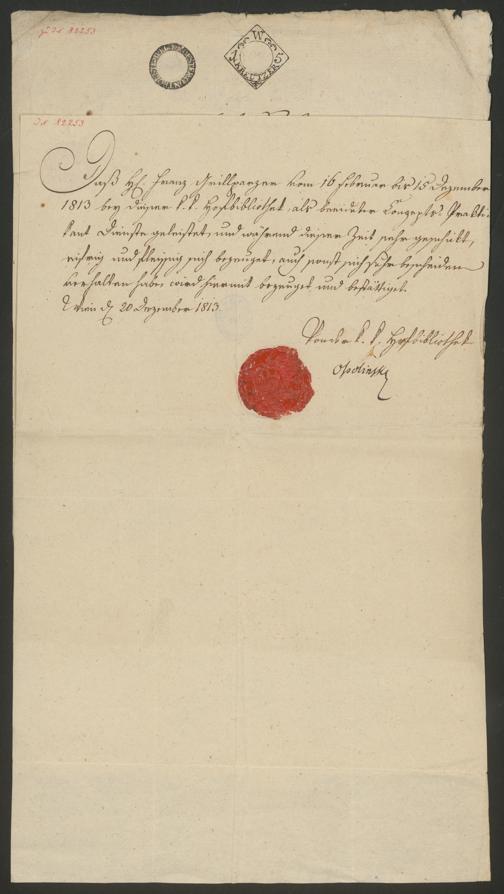 J.N. 82253
W
3
KREUTZER
J.N. 82253
Daß H. Franz Grillparzer vom 16 Februar bis 15 Dezember
1813 bey dieser k. k. Hofbibliothek, als beeideter Konzepts-Prakti-
kant Dienste geleistet, und während dieser Zeit sehr geschikt,
eifrig und fleißig sich bezeuget, auch sonst sich sehr bescheiden
verhalten habe, wird hiermit bezeuget und bestättiget.
Wien d. 20 Dezember 1813.
Von der k. k. Hofbibliothek
Ossolinsky